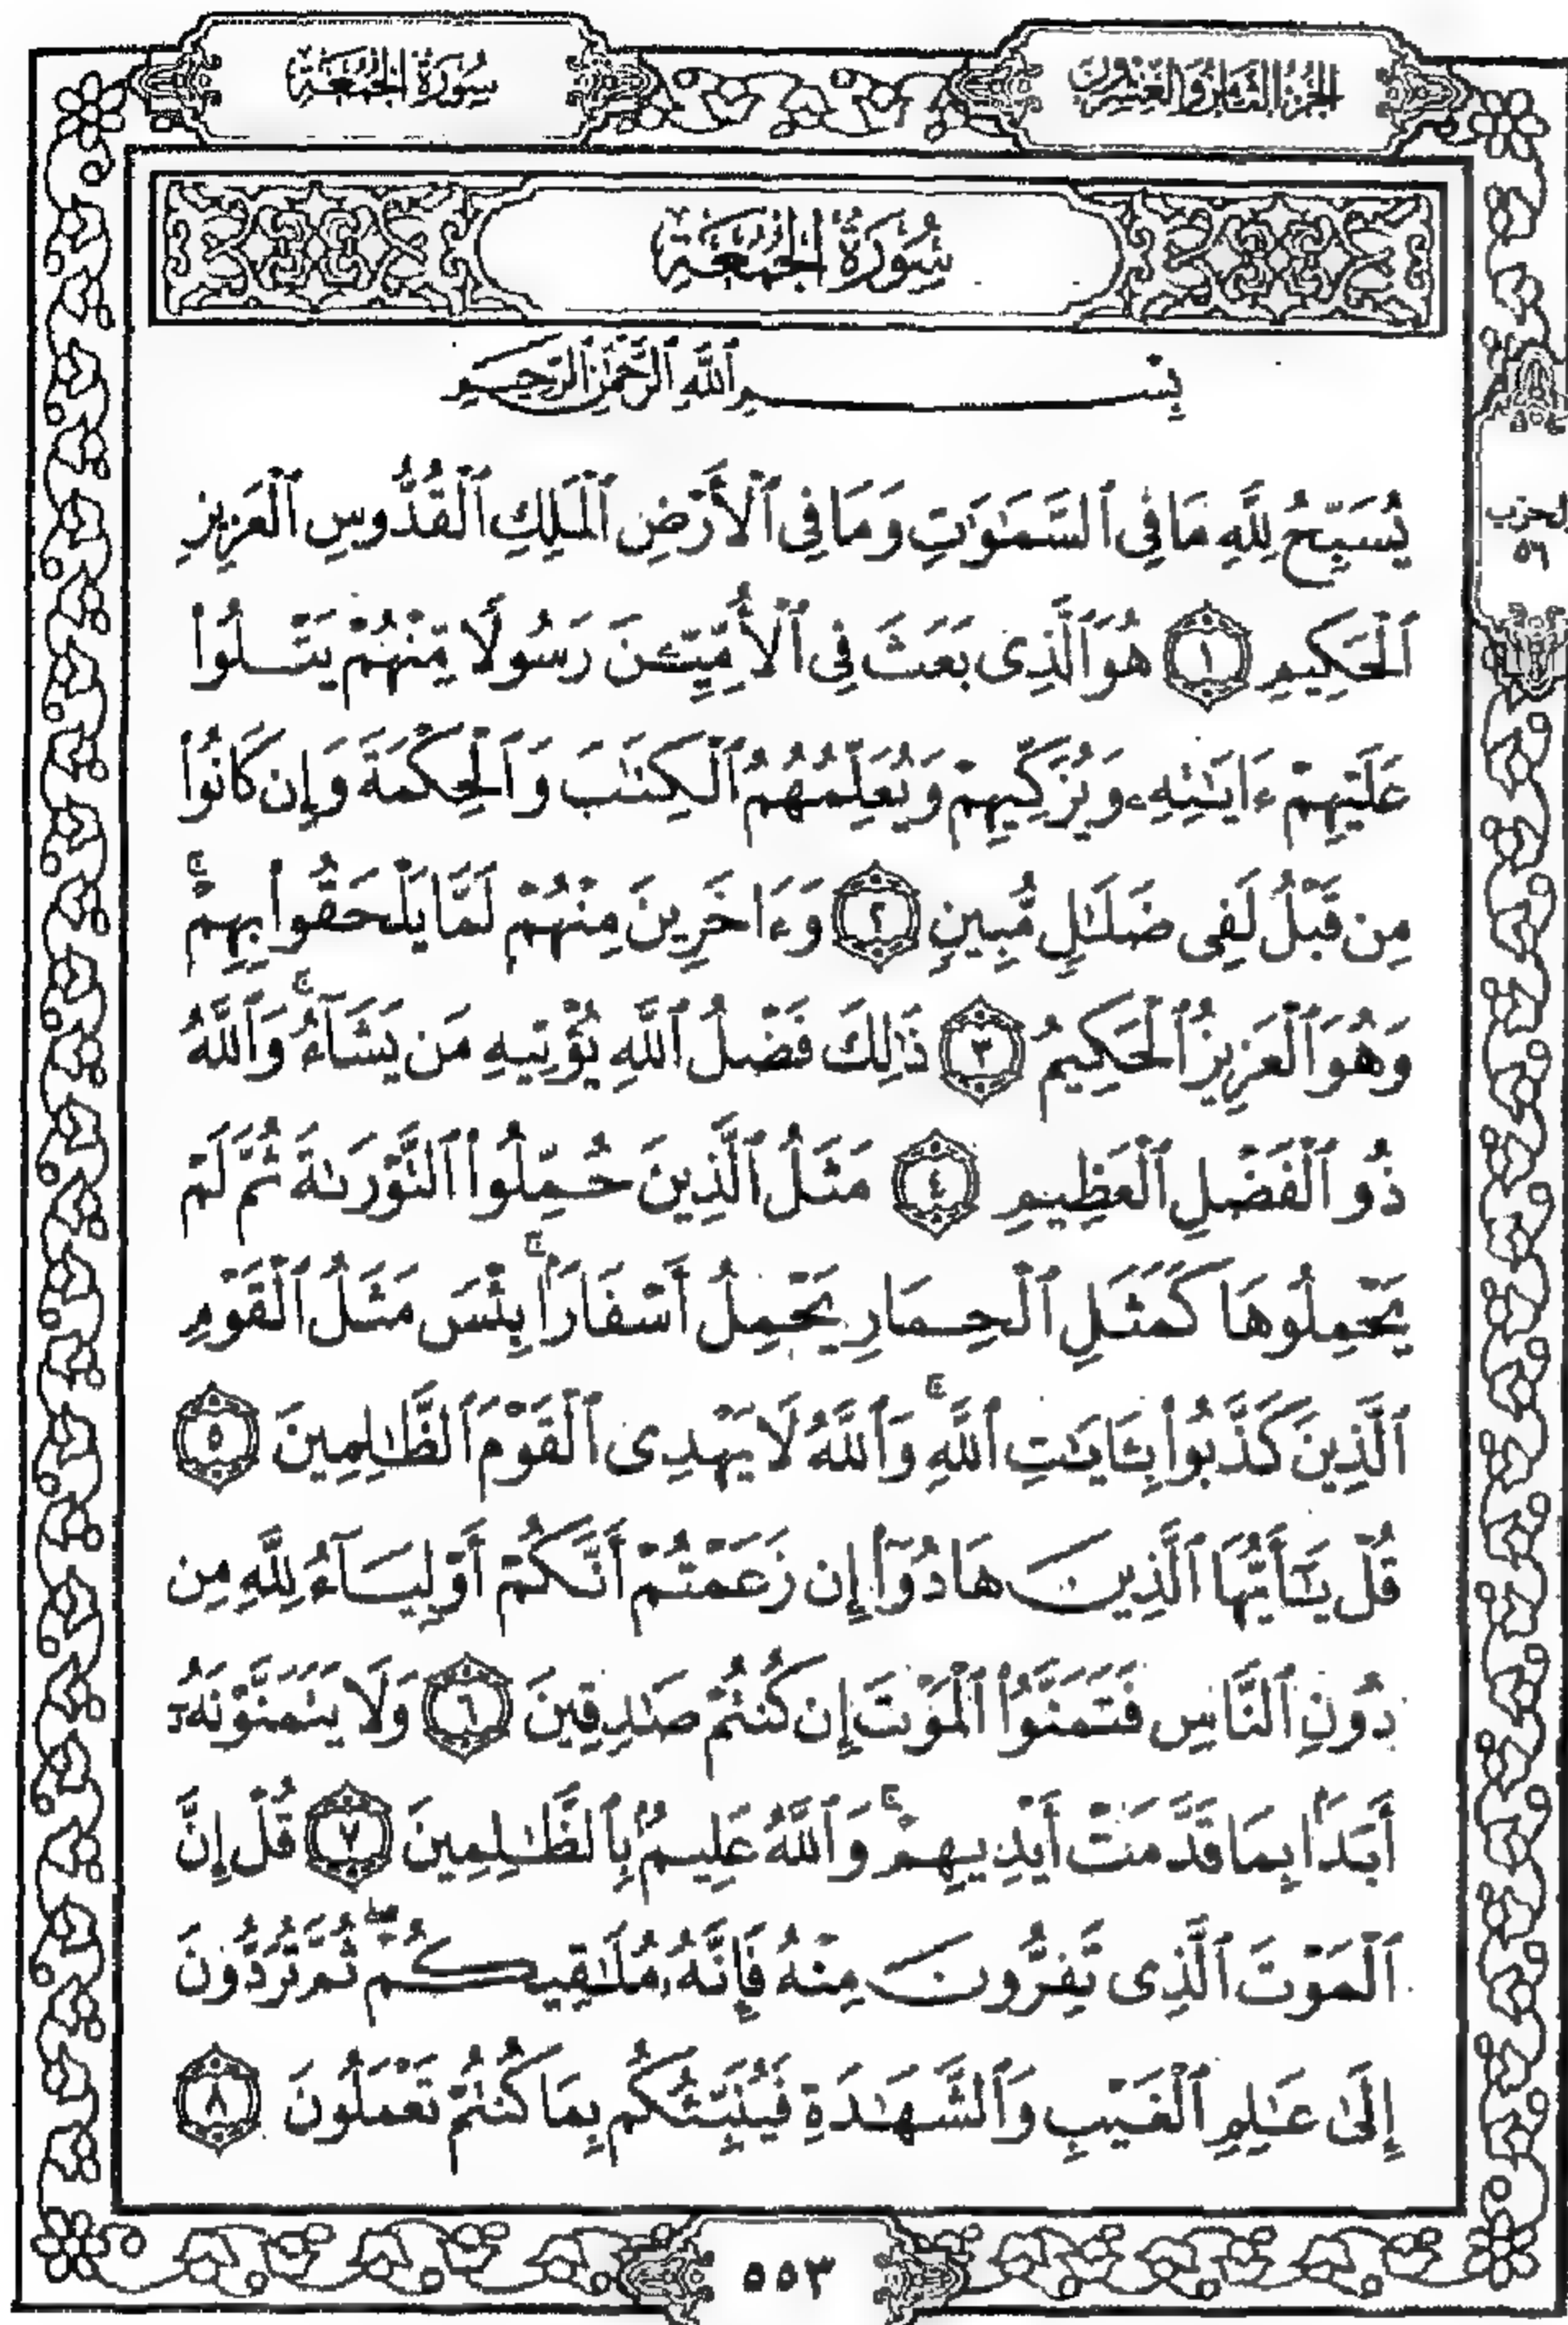 الجزء الثامن والعشرون
سورة الجمعة
سُورَةُ الجُمُعَةِ
بِسْمِ ٱللَّهِ ٱلرَّحْمَٰنِ ٱلرَّحِيمِ
يُسَبِّحُ لِلَّهِ مَا فِى ٱلسَّمَٰوَٰتِ وَمَا فِى ٱلْأَرْضِ ٱلْمَلِكِ ٱلْقُدُّوسِ ٱلْعَزِيزِ
ٱلْحَكِيمِ ١ هُوَ ٱلَّذِى بَعَثَ فِى ٱلْأُمِّيِّۦنَ رَسُولًا مِّنْهُمْ يَتْلُوا۟
عَلَيْهِمْ ءَايَٰتِهِۦ وَيُزَكِّيهِمْ وَيُعَلِّمُهُمُ ٱلْكِتَٰبَ وَٱلْحِكْمَةَ وَإِن كَانُوا۟
مِن قَبْلُ لَفِى ضَلَٰلٍ مُّبِينٍ ٢ وَءَاخَرِينَ مِنْهُمْ لَمَّا يَلْحَقُوا۟ بِهِمْ ۚ
وَهُوَ ٱلْعَزِيزُ ٱلْحَكِيمُ ٣ ذَٰلِكَ فَضْلُ ٱللَّهِ يُؤْتِيهِ مَن يَشَآءُ ۚ وَٱللَّهُ
ذُو ٱلْفَضْلِ ٱلْعَظِيمِ ٤ مَثَلُ ٱلَّذِينَ حُمِّلُوا۟ ٱلتَّوْرَىٰةَ ثُمَّ لَمْ
يَحْمِلُوهَا كَمَثَلِ ٱلْحِمَارِ يَحْمِلُ أَسْفَارًۢا ۚ بِئْسَ مَثَلُ ٱلْقَوْمِ
ٱلَّذِينَ كَذَّبُوا۟ بِـَٔايَٰتِ ٱللَّهِ ۚ وَٱللَّهُ لَا يَهْدِى ٱلْقَوْمَ ٱلظَّٰلِمِينَ ٥
قُلْ يَٰٓأَيُّهَا ٱلَّذِينَ هَادُوٓا۟ إِن زَعَمْتُمْ أَنَّكُمْ أَوْلِيَآءُ لِلَّهِ مِن
دُونِ ٱلنَّاسِ فَتَمَنَّوُا۟ ٱلْمَوْتَ إِن كُنتُمْ صَٰدِقِينَ ٦ وَلَا يَتَمَنَّوْنَهُۥٓ
أَبَدًۢا بِمَا قَدَّمَتْ أَيْدِيهِمْ ۚ وَٱللَّهُ عَلِيمٌۢ بِٱلظَّٰلِمِينَ ٧ قُلْ إِنَّ
ٱلْمَوْتَ ٱلَّذِى تَفِرُّونَ مِنْهُ فَإِنَّهُۥ مُلَٰقِيكُمْ ۖ ثُمَّ تُرَدُّونَ
إِلَىٰ عَٰلِمِ ٱلْغَيْبِ وَٱلشَّهَٰدَةِ فَيُنَبِّئُكُم بِمَا كُنتُمْ تَعْمَلُونَ ٨
الحزب
٥٦
٥٥٣